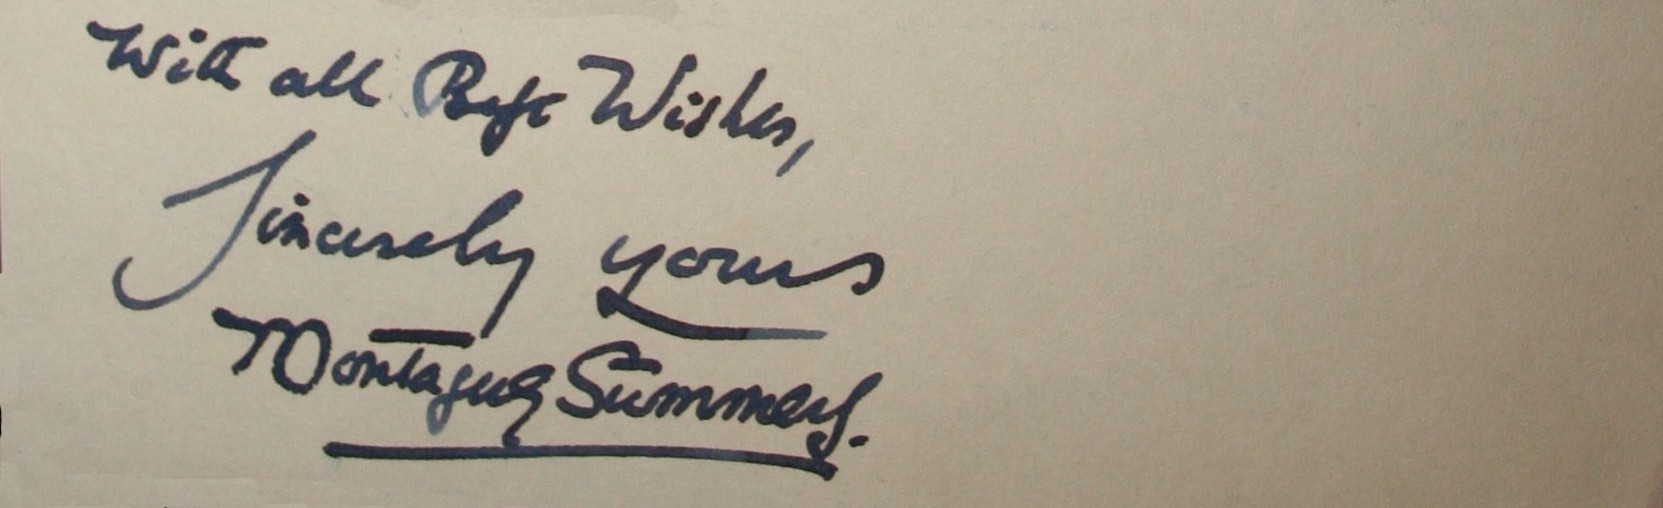 With all Best Wishes,
Sincerely yours
Montague Summers.